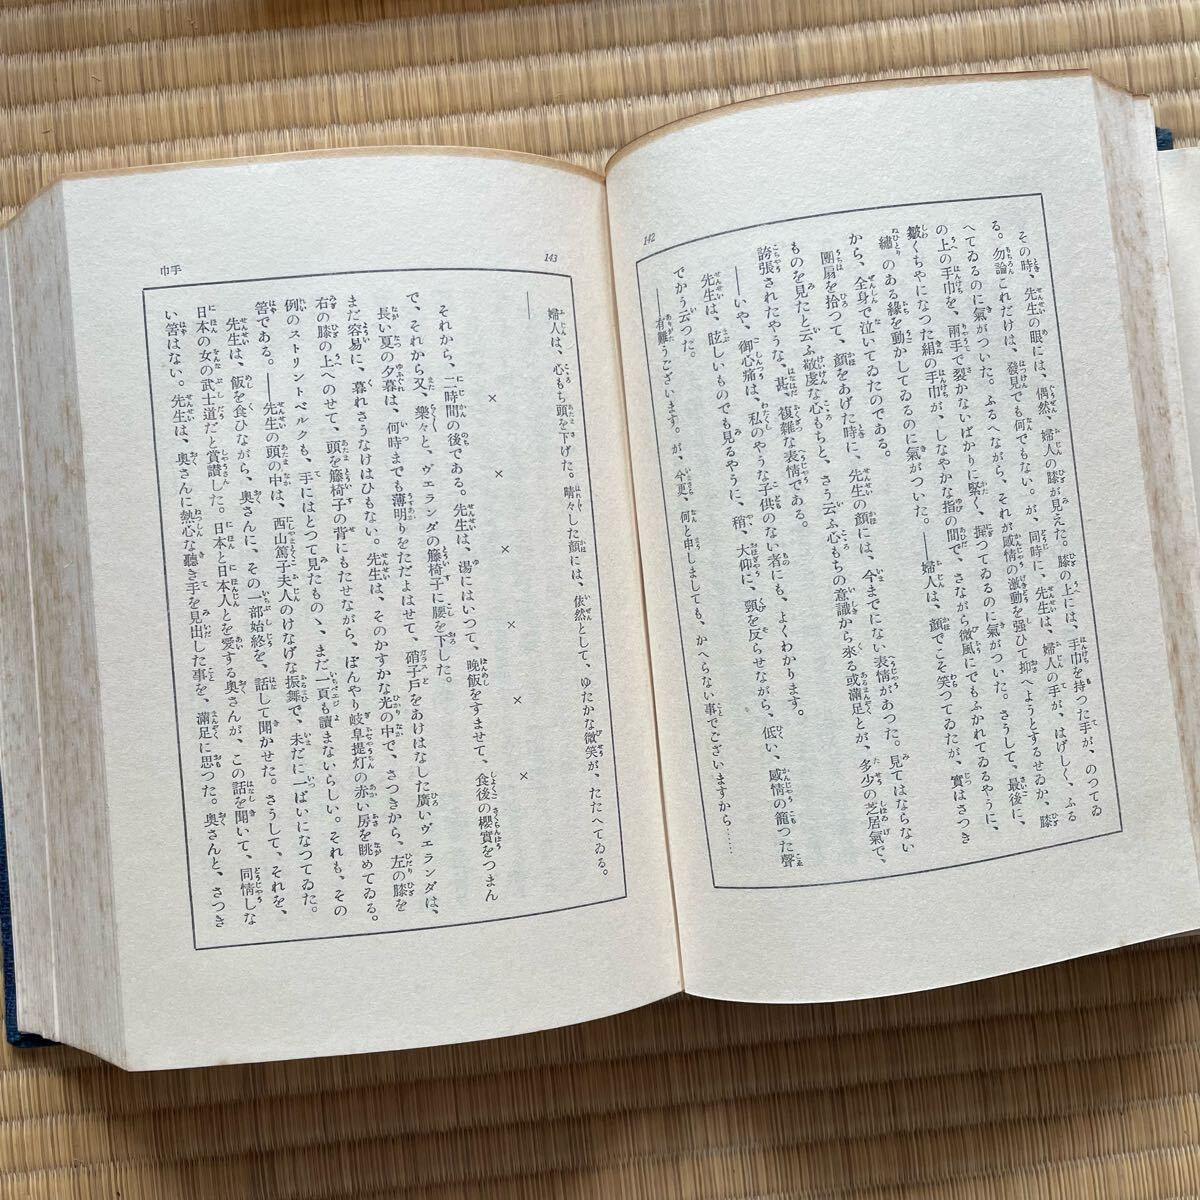 142
その時、先生の眼には、偶然、婦人の膝が見えた。膝の上には、手巾を持つた手が、のつてゐ
る。勿論これだけは、發見でも何でもない。が、同時に、先生は、婦人の手が、はげしく、ふる
へてゐるのに氣がついた。ふるへながら、それが感情の激動を强ひて抑へようとするせゐか、膝
の上の手巾を、兩手で裂かないばかりに緊く、握つてゐるのに氣がついた。さうして、最後に、
皺くちやになつた絹の手巾が、しなやかな指の間で、さながら微風にでもふかれてゐるやうに、
繡のある緣を動かしてゐるのに氣がついた。――婦人は、顏でこそ笑つてゐたが、實はさつき
から、全身で泣いてゐたのである。
團扇を拾つて、顏をあげた時に、先生の顏には、今までにない表情があつた。見てはならない
ものを見たと云ふ敬虔な心もちと、さう云ふ心もちの意識から來る或滿足とが、多少の芝居氣で、
誇張されたやうな、甚、複雜な表情である。
――いや、御心痛は、私のやうな子供のない者にも、よくわかります。
先生は、眩しいものでも見るやうに、稍、大仰に、頸を反らせながら、低い、感情の籠つた聲
でかう云つた。
――有難うございます。が、今更、何と申しましても、かへらない事でございますから……
143
手巾
婦人は、心もち頭を下げた。晴々した顏には、依然として、ゆたかな微笑が、たたへてゐる。――
× × × × × ×
それから、二時間の後である。先生は、湯にはいつて、晩飯をすませて、食後の櫻實をつまん
で、それから又、樂々と、ヴエランダの籐椅子に腰を下した。
長い夏の夕暮は、何時までも薄明りをただよはせて、硝子戶をあけはなした廣いヴエランダは、
まだ容易に、暮れさうなけはひもない。先生は、そのかすかな光の中で、さつきから、左の膝を
右の膝の上へのせて、頭を籐椅子の背にもたせながら、ぼんやり岐阜提灯の赤い房を眺めてゐる。
例のストリントベルクも、手にはとつて見たものゝ、まだ一頁も讀まないらしい。それも、その
筈である。――先生の頭の中は、西山篤子夫人のけなげな振舞で、未だに一ぱいになつてゐた。
先生は、飯を食ひながら、奥さんに、その一部始終を、話して聞かせた。さうして、それを、
日本の女の武士道だと賞讃した。日本と日本人とを愛する奥さんが、この話を聞いて、同情しな
い筈はない。先生は、奥さんに熱心な聽き手を見出した事を、滿足に思つた。奥さんと、さつき